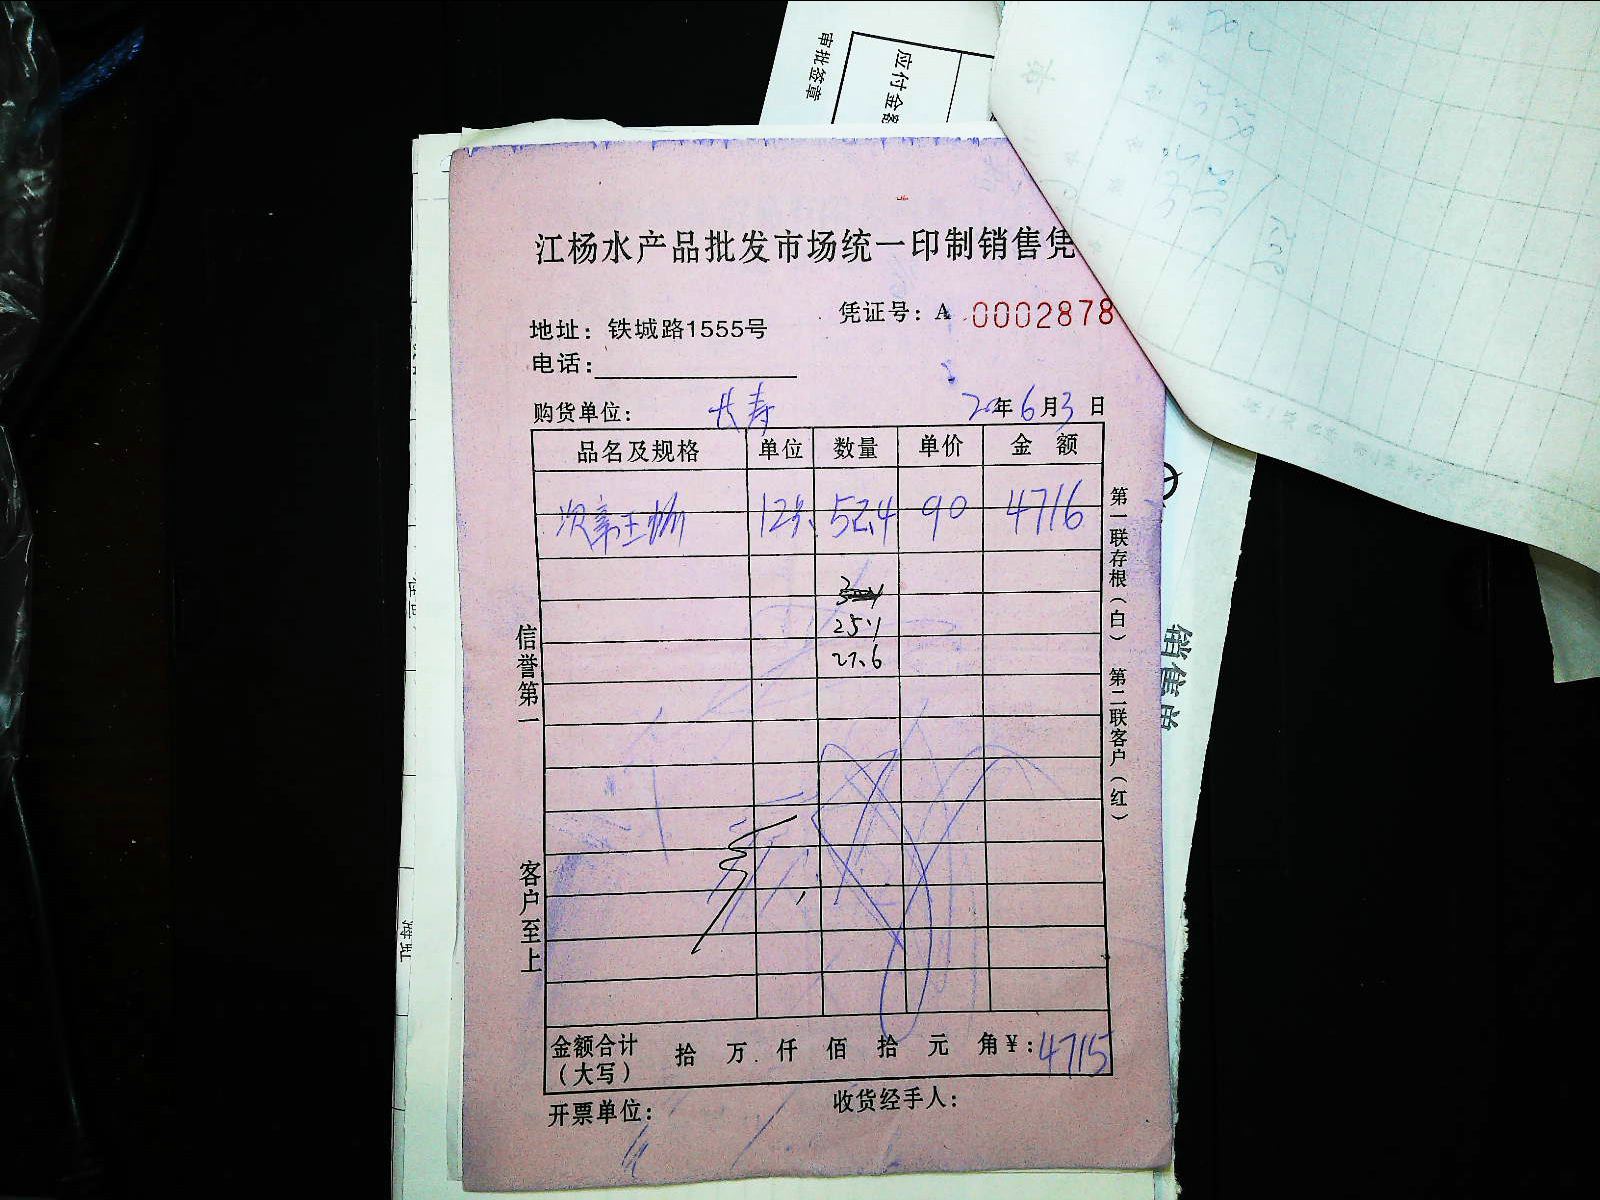 审批签章
应付金额
江杨水产品批发市场统一印制销售凭
凭证号：A 0002878
地址：铁城路1555号
电话：
购货单位： 长寿 20年6月3日
品名及规格 单位 数量 单价 金 额
52.4 90 4716
25.1
27.6
信誉第一
客户至上
第一联存根（白） 第二联客户（红）
金额合计（大写） 拾 万 仟 佰 拾 元 角 ¥：4715
开票单位： 收货经手人：
销售单